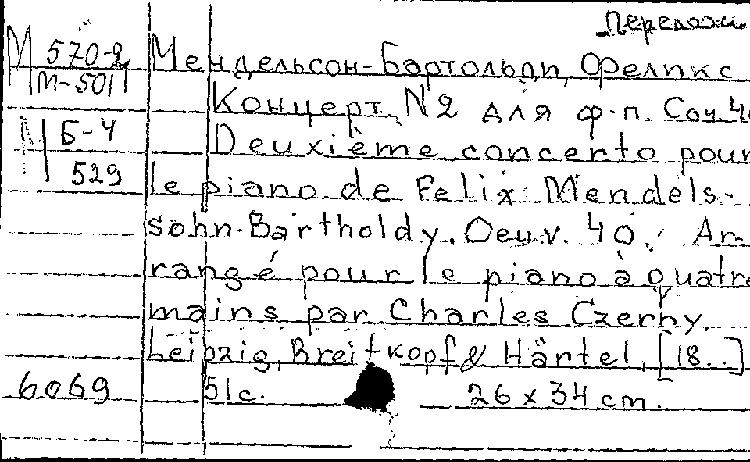 Перелож.
М 570-2 Мендельсон-Бартольди, Феликс
М-501 Концерт N2 для ф-п. Соч 40
Б-4 Deuxième concerto pour
529 le piano de Felix Mendels-
sohn-Bartholdy. Oeuv. 40. Ar-
rangé pour le piano à quatre
mains par Charles Czerny.
Leipzig, Breitkopf & Härtel, [18..]
6069 51c. 26 x 34 cm.